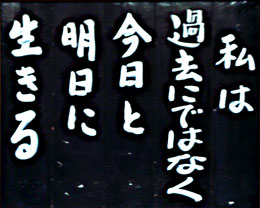 私は
過去にではなく
今日と
明日に
生きる